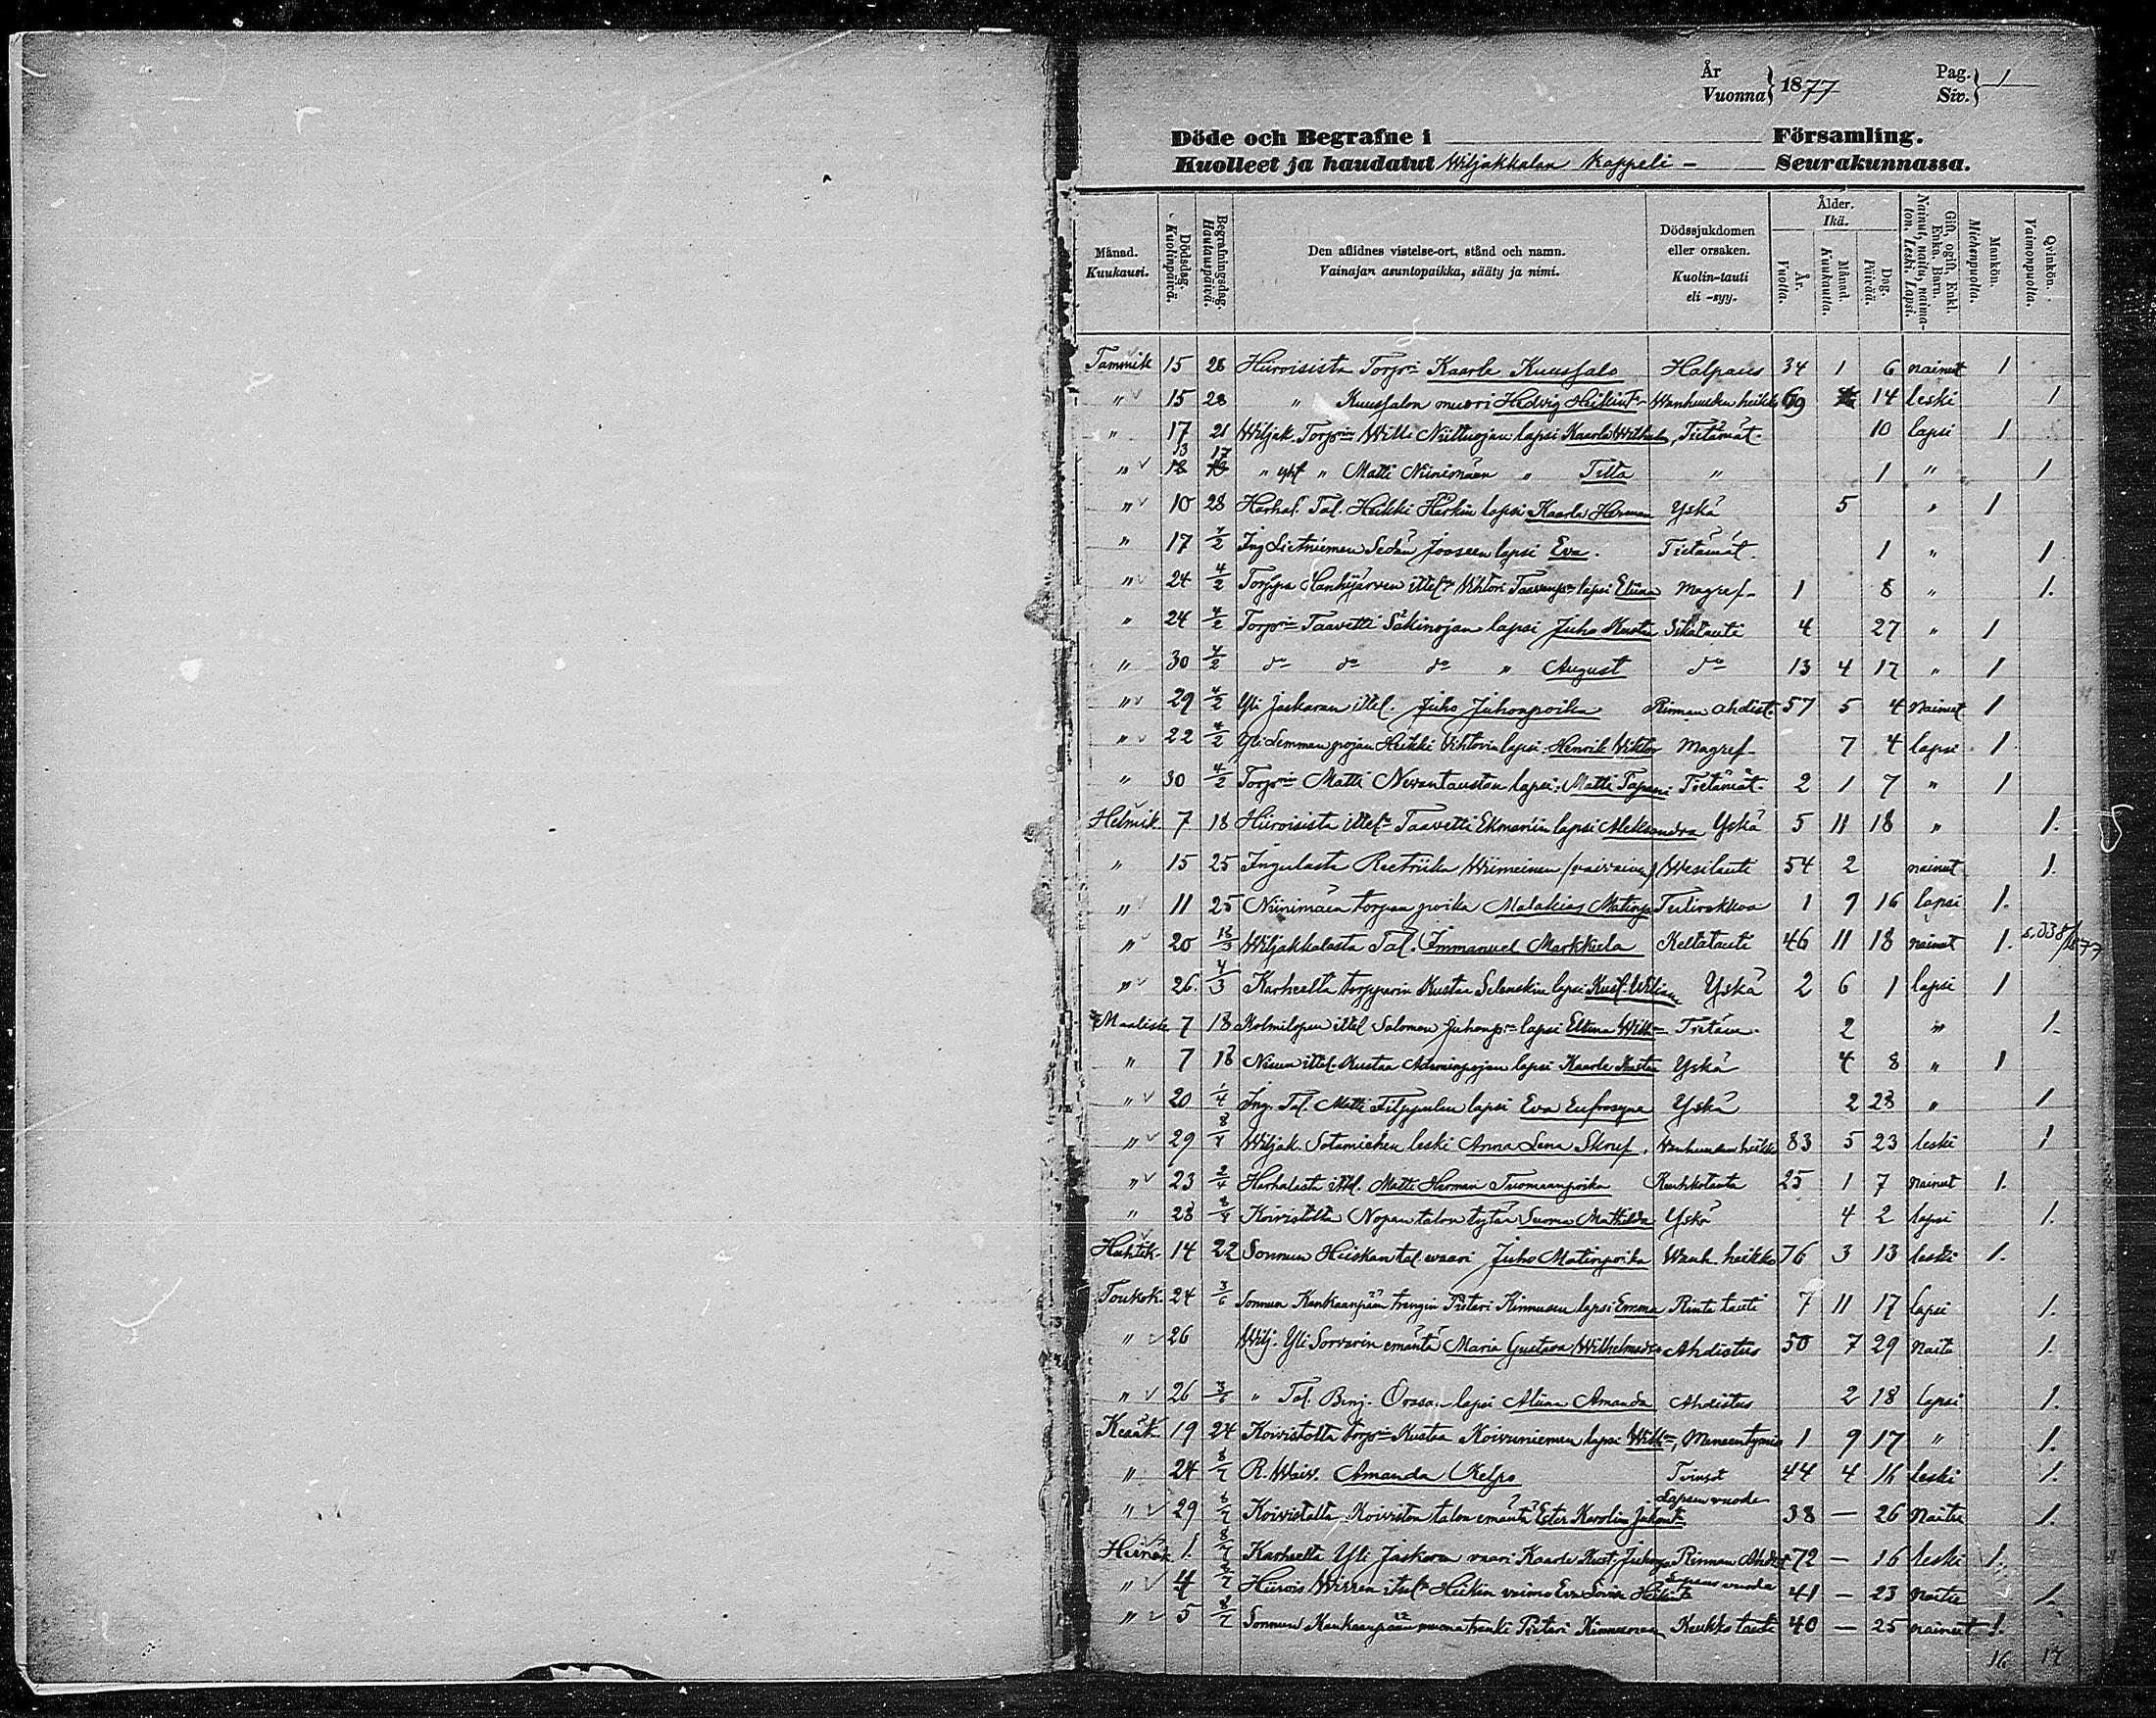 År Vuonna } 1877 Pag. Siv. } 1
Döde och Begrafne i Församling.
Kuolleet ja haudatut Wiljakkalan Kappeli - Seurakunnassa.
Månad. Kuukausi. Dödsdag. Kuolinpäivä. Begrafningsdag. Hautauspäivä. Den aflidnes vistelse-ort, stånd och namn. Vainajan asuntopaikka, sääty ja nimi. Dödssjukdomen eller orsaken. Kuolin-tauti eli -syy. Ålder. Ikä. År. Vuotta. Månad. Kuukautta. Dag. Päivää. Gift, ogift, Enkl. Enka, Barn. Nainut, naitu, naimaton, Leski, Lapsi. Mankön. Miehenpuolta. Qvinkön. Vaimonpuolta.
Tammik 15 28 Hiiroisista Torpri Kaarle Kuussalo Halpaus 34 1 6 nainut 1
" 15 28 " Kuussalon muori Hedvig Heikint. Wanhuuden heikko 69 14 leski 1
" 17 21 Wiljak. Torprin Wille Niittuojan lapsi Kaarle Wilhelm Tietämät. 10 lapsi 1
" 13 17 " " Matti Niinimäen " Tilta " 1 " 1
" 10 28 Harhal. Tal. Heikki Härkin lapsi Kaarle Herman Yskä 5 " 1
" 17 4/2 Ing. Lietniemen Sedän Jooseen lapsi Eva. Tietämät. 1 " 1
" 24 4/2 Torppa Hankijärven ittel. Wihtori lapsi Eliina Magref. 1 8 " 1.
" 24 4/2 Torprin Taavetti Säkinojan lapsi Juho Kustaa Sikatauti 4 27 " 1
" 30 4/2 do do do " August do 13 4 17 " 1
" 29 4/2 Yli Jaskaran ittel. Juho Juhonpoika Rinnan ahdist. 57 5 4 Nainut 1
" 22 4/2 Yli Lemmanpojan Heikki Wihtorin lapsi Henrik Wiktor Magref. 7 4 lapsi 1
" 30 4/2 Torprin Matti Nevantaustan lapsi Matti Tapani Tietämät. 2 1 7 " 1
Helmik 7 18 Hiiroisista ittel. Taavetti Ekmanin lapsi Aleksandra Yskä 5 11 18 " 1.
" 15 25 Ingulasta Reetriika Wiimeinen (vaivainen) Wesitauti 54 2 nainut 1.
" 11 25 Niinimäen torpan poika Malakias Matinp. Tulirokkoa 1 9 16 lapsi 1.
" 20 18/3 Wiljakkalasta Tal. Immanuel Markkula Keltatauti 46 11 18 nainut 1. s. 338/1877
" 26. 4/3 Karheelta torpparin Kustaa Selenskin lapsi Kust. Wiliam Yskä 2 6 1 lapsi 1
Maalisk 7 18 Kolmilopen ittel Salomon Juhonp. lapsi Eliina Wilh. Tietäm. 2 " 1.
" 7 18 ittel. Kustaa Adaminpojan lapsi Kaarle Kustaa Yskä 4 8 " 1
" 20 1/4 Ing. Tal. Matti Filppulan lapsi Eva Eufrosyna Yskä 2 28 " 1
" 29 8/4 Wiljak. Sotamiehen leski Anna Lena Skruf. Wanhuuden heikko 83 5 23 leski 1
" 23 2/4 Harhalasta ittel. Matti Herman Tuomaanpoika Keuhkotauta 25 1 7 nainut 1.
" 28 8/4 Koivistolta Nopan talon tytär Suoma Mathilda Yskä 4 2 lapsi 1.
Huhtik. 14 22 Sonnun Heiskan tal. vaari Juho Matinpoika Wanh. heikko 76 3 13 leski 1.
Toukok. 24 3/6 Sonnun Kankaanpään trengin Pietari Kinnusen lapsi Emma Rinta tauti 7 11 17 lapsi 1.
" 26 Wilj. Yli Sorvarin emäntä Maria Gustava Wilhelmadr. Ahdistus 50 7 29 Naitu 1.
" 26 3/6 " Tal. Benj. Orasa. lapsi Aliina Amanda Ahdistus 2 18 lapsi 1.
Kesäk 19 24 Koivistolta torprin Kustaa Koivuniemen lapsi Wilh. 1 9 17 " 1.
" 24 8/7 R. Waiv. Amanda Kelpo 44 4 16 leski 1.
" 29 8/7 Koivistolta Koiviston talon emäntä Ester Karolina Juhont. Lapsen vuode 38 — 26 Naitu 1.
Heinäk 1. 8/7 Karheelta Yli Jaskaran vaari Kaarle Kust. Juhonp. Rinnan Ahdist 72 — 16 leski 1.
" 4 8/7 Hiirois Wirren itsel. Heikin vaimo Eva Lovisa Heikint. Lapsen vuode 41 — 23 Naitu 1.
" 5 8/7 Sonnun Kankaanpään muona trenki Pietari Kinnunen Keuhko tauti 40 — 25 nainut 1.
16 17